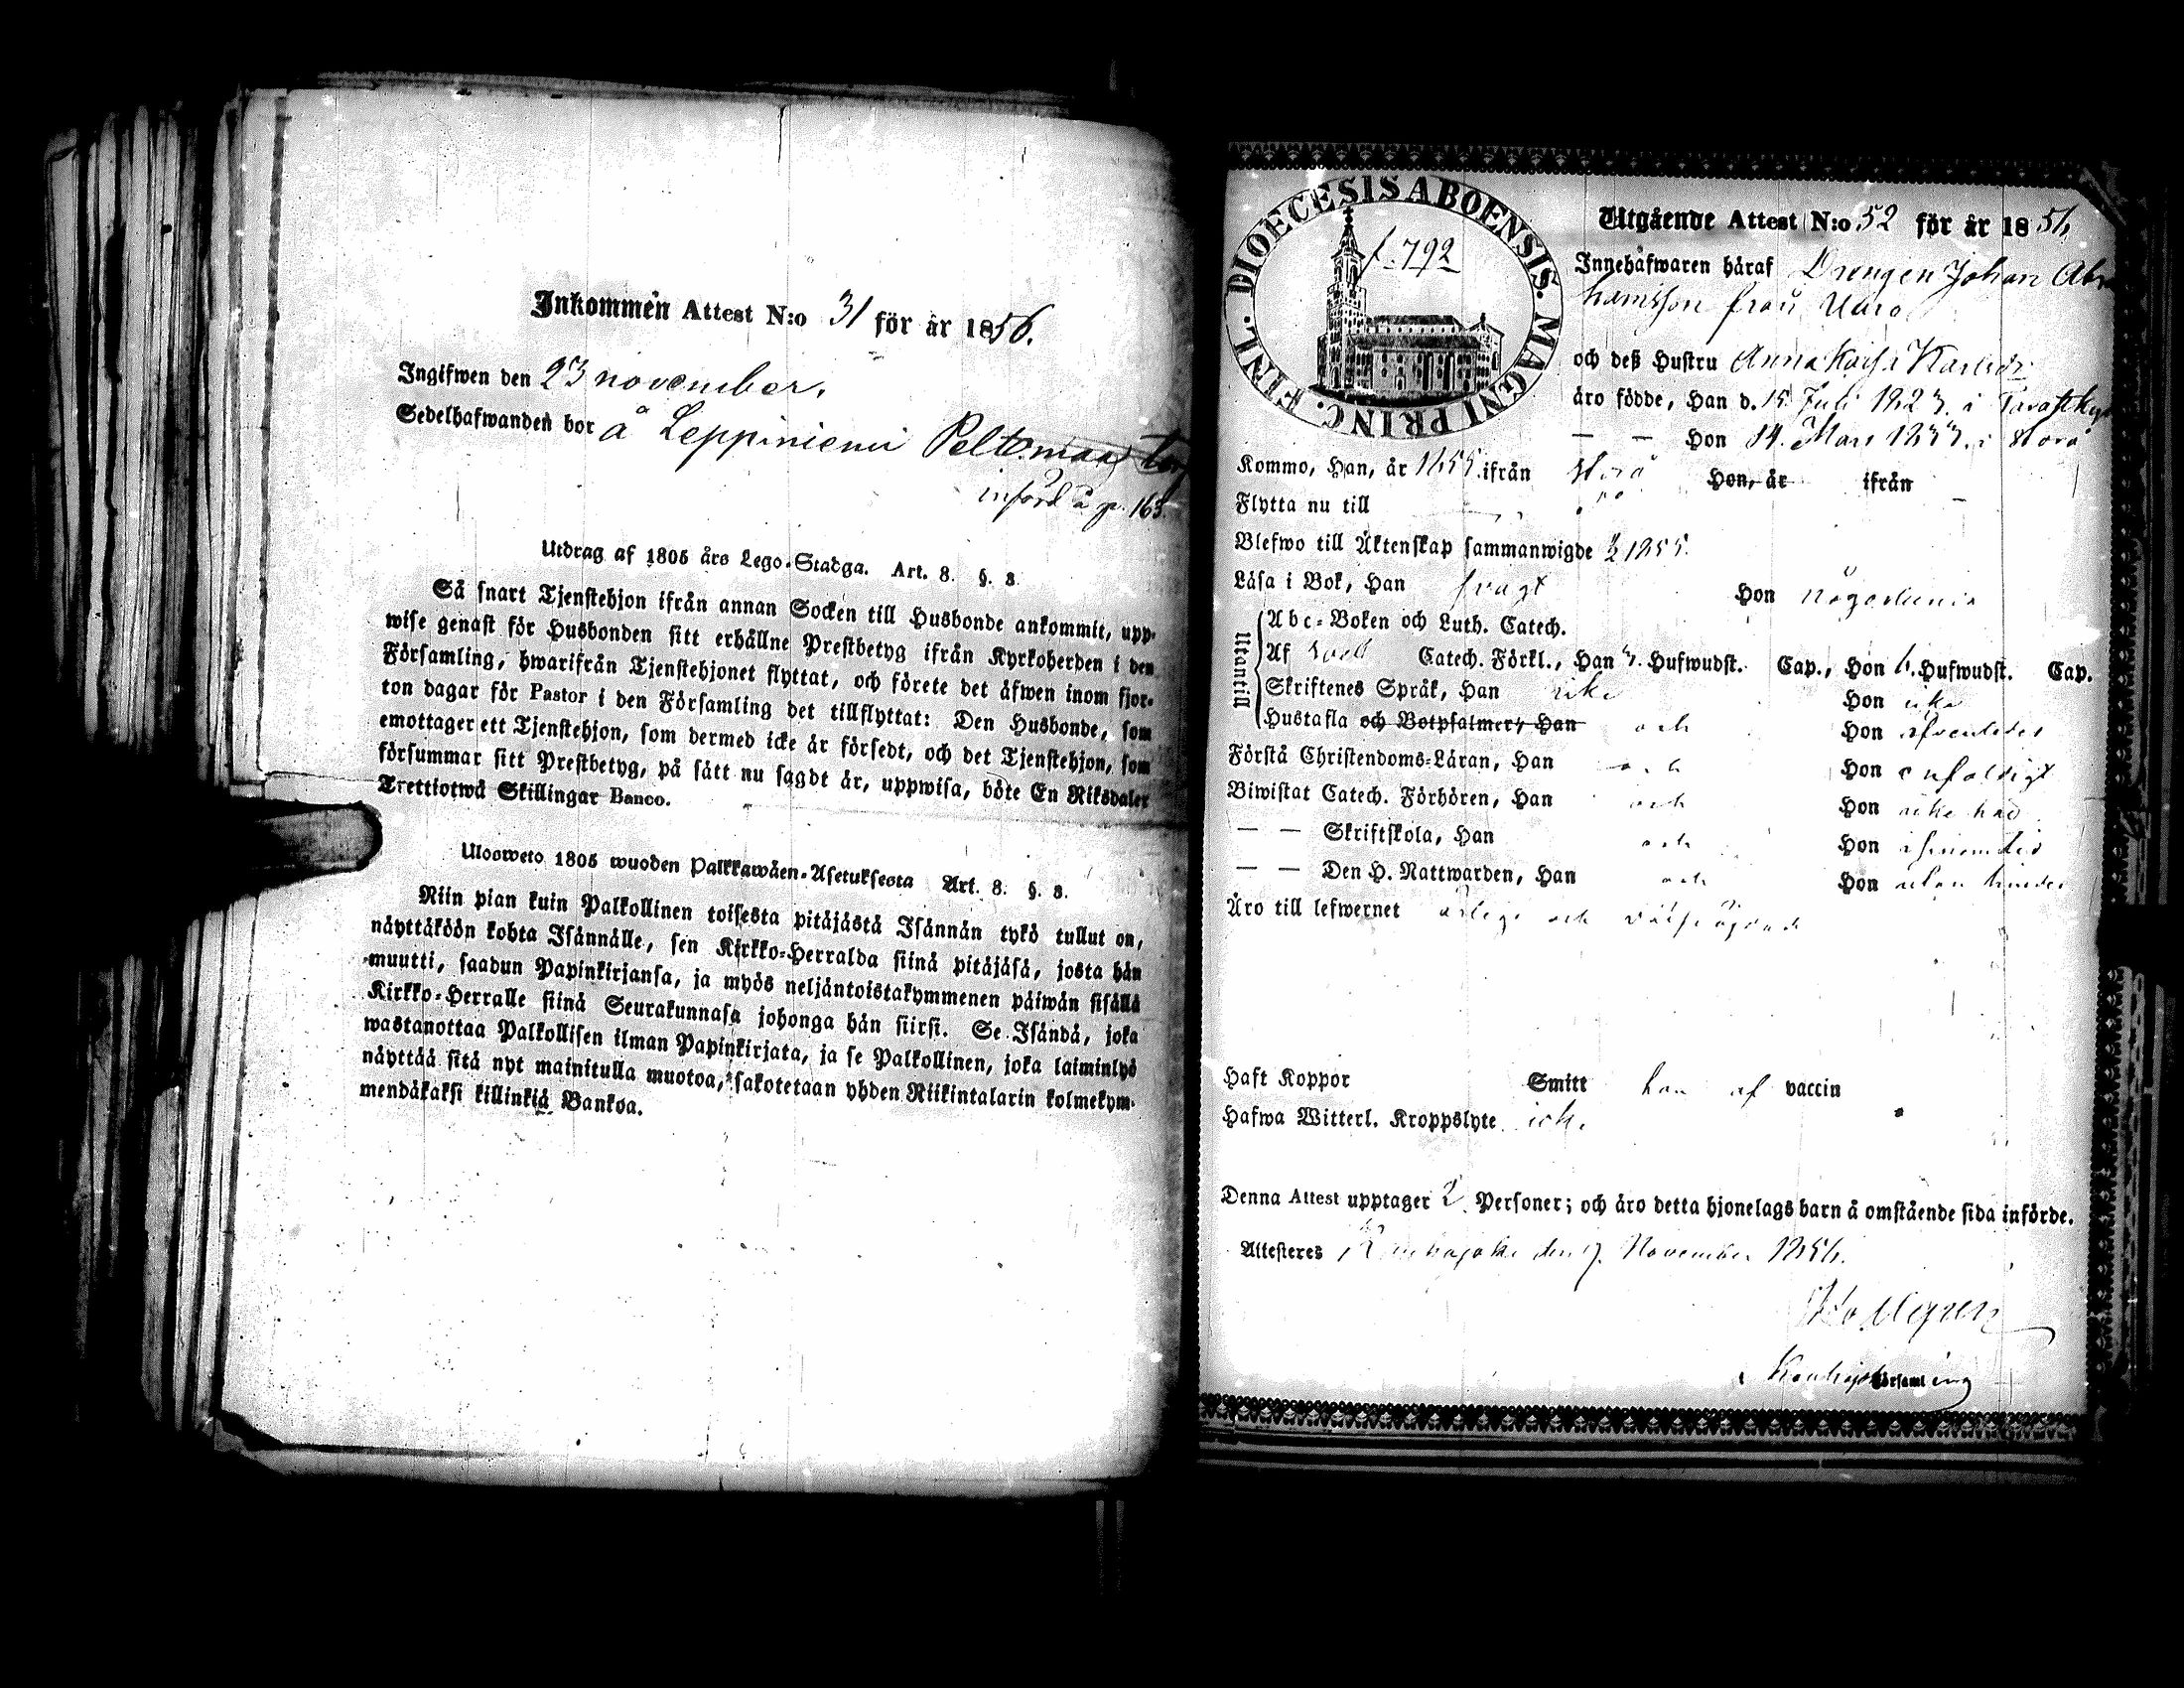 Inkommen Attest N:o 31 för år 1856.
Ingifwen den 23 november.
Sedelhafwanden bor å Leppiniemi Peltomaa
införd å p. 163.
Utdrag af 1805 års Lego-Stadga. Art. 8. §. 8
Så snart Tjenstehjon ifrån annan Socken till Husbonde ankommit, upp-
wise genast för Husbonden sitt erhållne Prestbetyg ifrån Kyrkoherden i den
Församling, hwarifrån Tjenstehjonet flyttat, och förete det äfwen inom fjor-
ton dagar för Pastor i den Församling det tillflyttat: Den Husbonde, som
emottager ett Tjenstehjon, som dermed icke är försedt, och det Tjenstehjon, som
försummar sitt Prestbetyg, på sätt nu sagdt är, uppwisa, böte En Riksdaler
Trettiotwå Skillingar Banco.
Uloswetο 1805 wuoden Palkkawäen-Asetuksesta Art. 8. §. 8.
Niin pian kuin Palkollinen toisesta pitäjästä Isännän tykö tullut on,
näyttäköön kohta Isännälle, sen Kirkko-Herralda siinä pitäjäsä, josta hän
muutti, saadun Papinkirjansa, ja myös neljäntoistakymmenen päiwän sisällä
Kirkko-Herralle siinä Seurakunnasa johonga hän siirsi. Se Isändä, joka
wastanottaa Palkollisen ilman Papinkirjata, ja se Palkollinen, joka laiminlyö
näyttää sitä nyt mainitulla muotoa, sakotetaan yhden Riikintalarin kolmekym-
mendäkaksi killinkiä Bankoa.
DIOECESIS ABOENSIS. MAGNI PRINC. FINL.
f. 792
Utgående Attest N:o 52 för år 1856
Innehafwaren häraf Drengen Johan Abra
hamsson från
och deß Hustru Anna Kaisa Karlsdr
äro födde, Han d. 15 Juli 1823. i
— — Hon 14. Mars 1833. i Storå
Kommo, Han, år 1855. ifrån Storå Hon, år ifrån
Flytta nu till
Blefwo till Äktenskap sammanwigde 1855.
Läsa i Bok, Han svagt Hon någorlunda
Utantill
Abc-Boken och Luth. Catech.
Af Catech. Förkl., Han 3. Hufwudst. Cap., Hon 6. Hufwudst. Cap.
Skriftenes Språk, Han icke Hon icke
Hustafla och Botpsalmer, Han och Hon äfvenledes
Förstå Christendoms-Läran, Han och Hon enfaldigt
Biwistat Catech. Förhören, Han och Hon
— — Skriftskola, Han och Hon
— — Den H. Nattwarden, Han och Hon utan hinder
Äro till lefwernet ärlige och välfrägdade
Haft Koppor Smitt han af vaccin
Hafwa Witterl. Kroppslyte icke
Denna Attest upptager 2. Personer; och äro detta hjonelags barn å omstående sida införde.
Attesteres Kauhajoki den 9. November 1856.
Kauhajoki församling